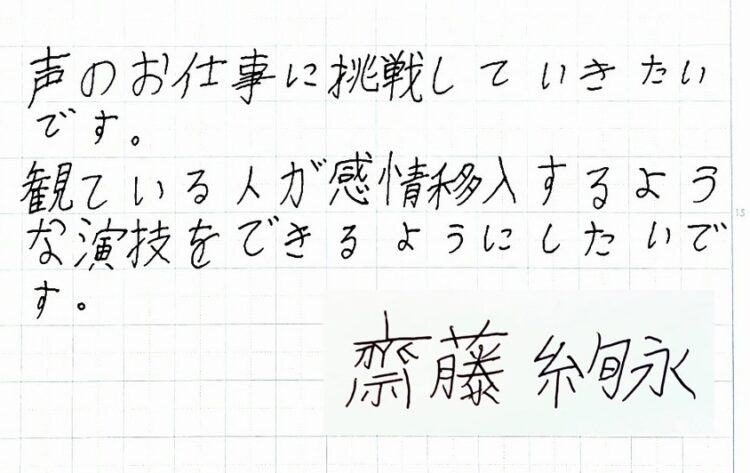 声のお仕事に挑戦していきたい
です。
観ている人が感情移入するよう
な演技をできるようにしたいで
す。
齋藤 絢永
15